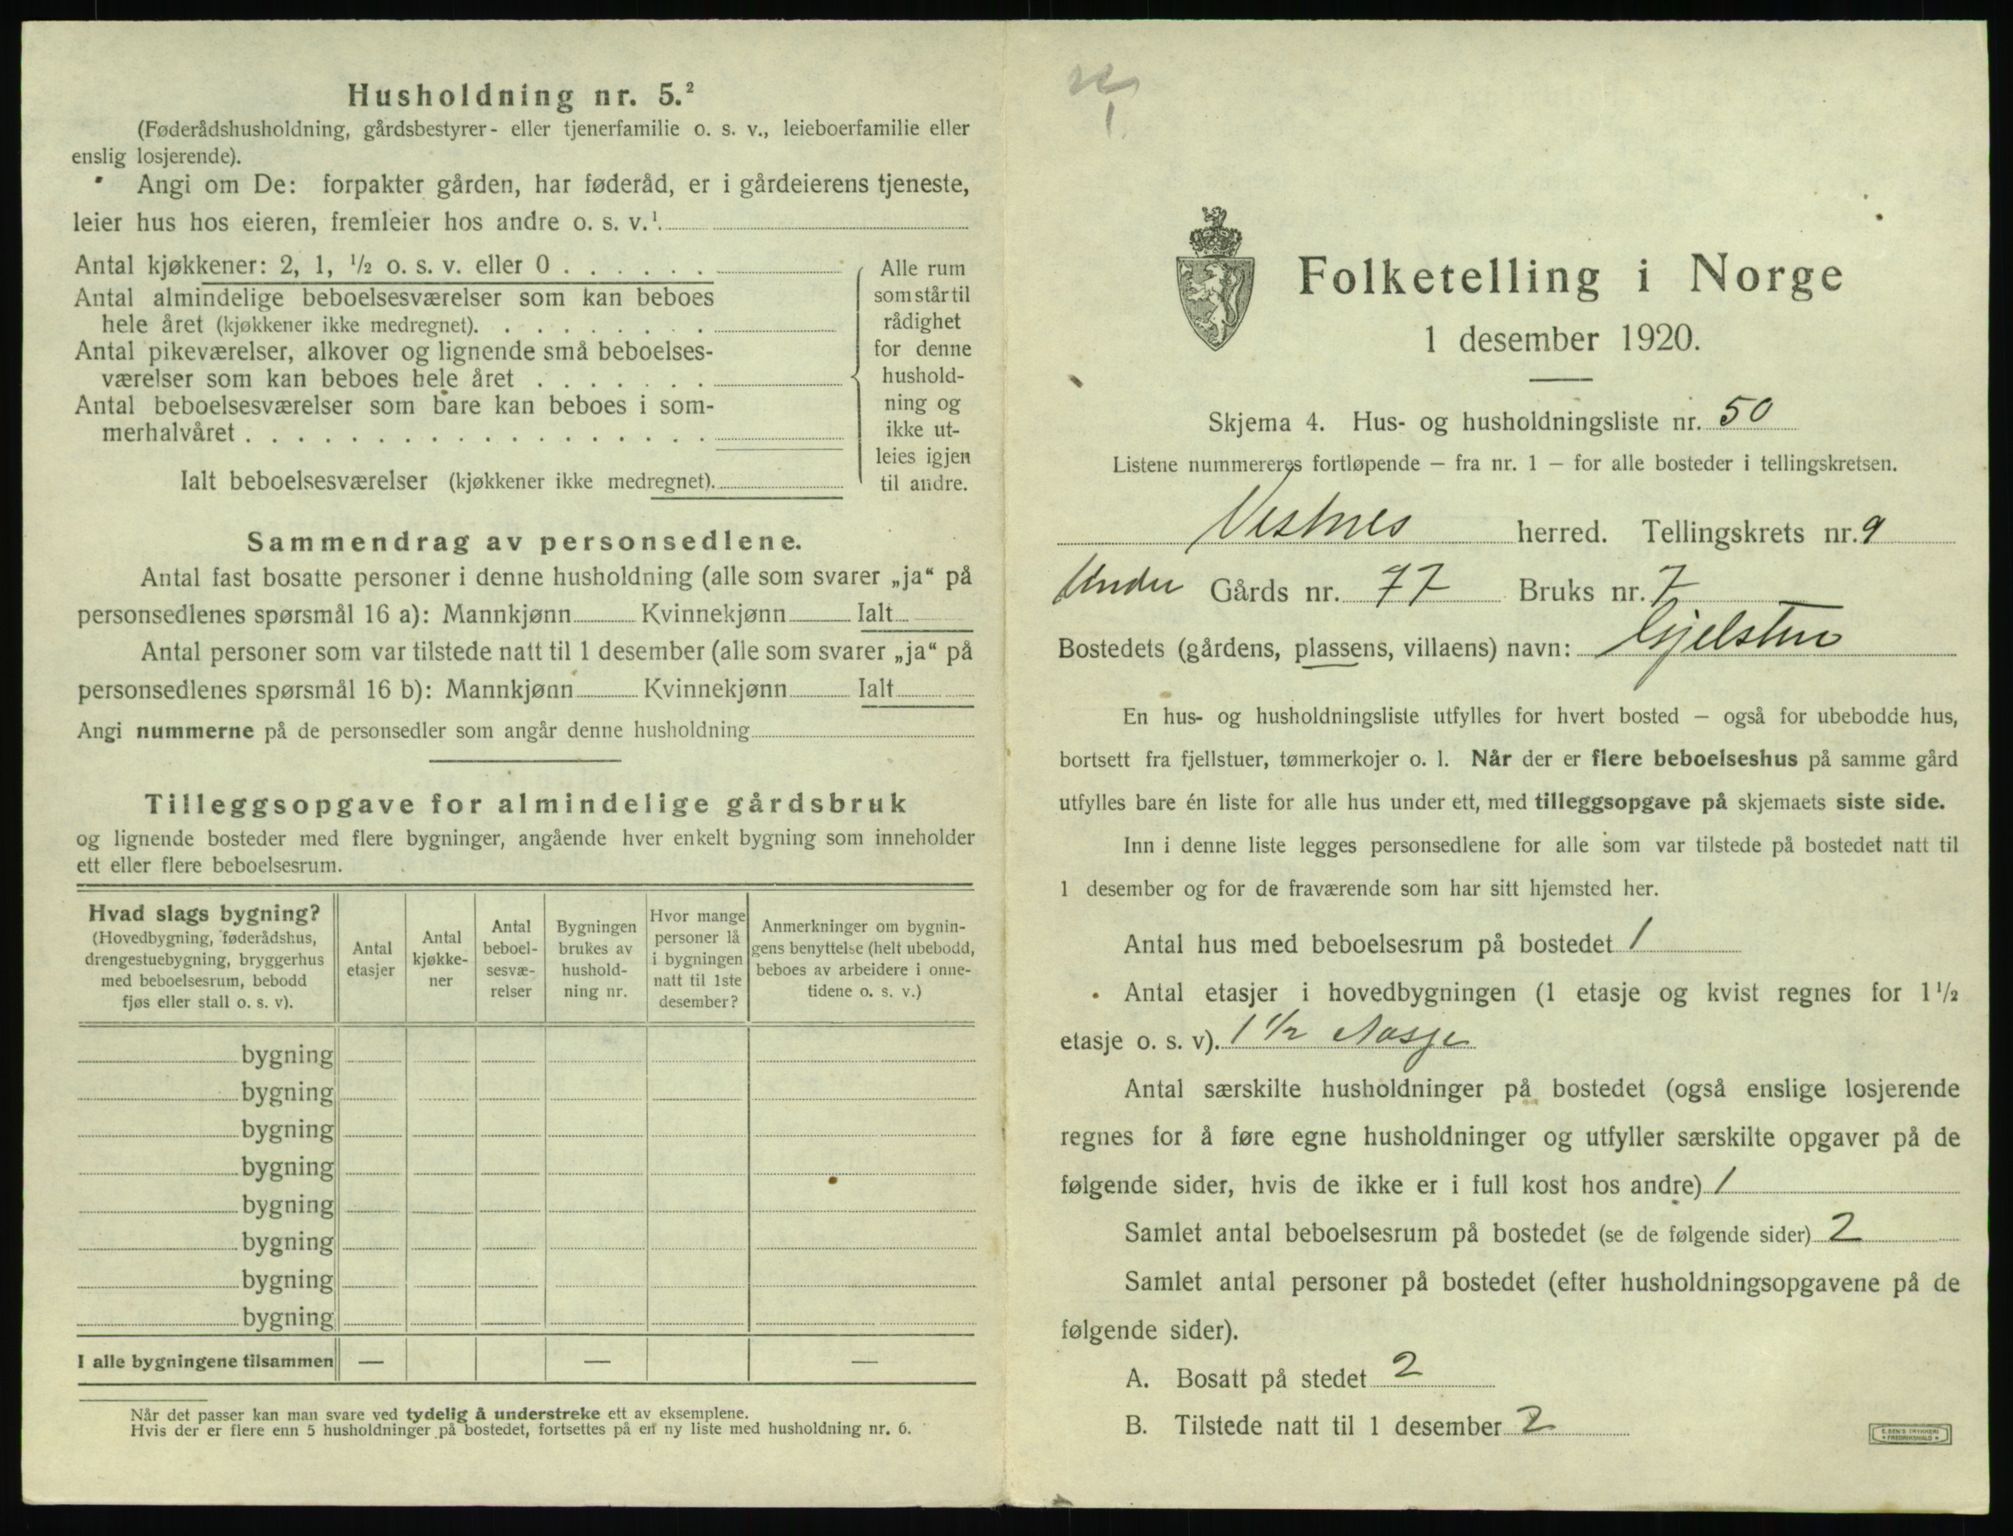 Husholdning nr. 5.²
(Føderådshusholdning, gårdsbestyrer- eller tjenerfamilie o. s. v., leieboerfamilie eller
enslig losjerende).
Angi om De: forpakter gården, har føderåd, er i gårdeierens tjeneste,
leier hus hos eieren, fremleier hos andre o. s. v.¹
Antal kjøkkener: 2, 1, ½ o. s. v. eller 0 . . . . . .
Antal almindelige beboelsesværelser som kan beboes
hele året (kjøkkener ikke medregnet). . . . . . . . .
Antal pikeværelser, alkover og lignende små beboelses-
værelser som kan beboes hele året . . . . . . .
Antal beboelsesværelser som bare kan beboes i som-
merhalvåret . . . . . . . . . . . . . . . . . .
Ialt beboelsesværelser (kjøkkener ikke medregnet).
Alle rum
som står til
rådighet
for denne
hushold-
ning og
ikke ut-
leies igjen
til andre.
Sammendrag av personsedlene.
Antal fast bosatte personer i denne husholdning (alle som svarer „ja“ på
personsedlenes spørsmål 16 a): Mannkjønn Kvinnekjønn Ialt
Antal personer som var tilstede natt til 1 desember (alle som svarer „ja“ på
personsedlenes spørsmål 16 b): Mannkjønn Kvinnekjønn Ialt
Angi nummerne på de personsedler som angår denne husholdning
Tilleggsopgave for almindelige gårdsbruk
og lignende bosteder med flere bygninger, angående hver enkelt bygning som inneholder
ett eller flere beboelsesrum.
Hvad slags bygning?
(Hovedbygning, føderådshus,
drengestuebygning, bryggerhus
med beboelsesrum, bebodd
fjøs eller stall o. s. v).
Antal
etasjer
Antal
kjøkke-
ner
Antal
beboel-
sesvæ-
relser
Bygningen
brukes av
hushold-
ning nr.
Hvor mange
personer lå
i bygningen
natt til 1ste
desember?
Anmerkninger om bygnin-
gens benyttelse (helt ubebodd,
beboes av arbeidere i onne-
tidene o. s. v.)
bygning
bygning
bygning
bygning
bygning
bygning
bygning
bygning
I alle bygningene tilsammen — — —
Når det passer kan man svare ved tydelig å understreke ett av eksemplene.
Hvis der er flere enn 5 husholdninger på bostedet, fortsettes på en ny liste med husholdning nr. 6.
1
Folketelling i Norge
1 desember 1920.
Skjema 4. Hus- og husholdningsliste nr. 50
Listene nummereres fortløpende – fra nr. 1 – for alle bosteder i tellingskretsen.
Vestnes herred. Tellingskrets nr. 9
Under Gårds nr. 77 Bruks nr. 7
Bostedets (gårdens, plassens, villaens) navn: Gjelsten
En hus- og husholdningsliste utfylles for hvert bosted – også for ubebodde hus,
bortsett fra fjellstuer, tømmerkojer o. l. Når der er flere beboelseshus på samme gård
utfylles bare én liste for alle hus under ett, med tilleggsopgave på skjemaets siste side.
Inn i denne liste legges personsedlene for alle som var tilstede på bostedet natt til
1 desember og for de fraværende som har sitt hjemsted her.
Antal hus med beboelsesrum på bostedet 1
Antal etasjer i hovedbygningen (1 etasje og kvist regnes for 1½
etasje o. s. v). 1 ½
Antal særskilte husholdninger på bostedet (også enslige losjerende
regnes for å føre egne husholdninger og utfyller særskilte opgaver på de
følgende sider, hvis de ikke er i full kost hos andre) 1
Samlet antal beboelsesrum på bostedet (se de følgende sider) 2
Samlet antal personer på bostedet (efter husholdningsopgavene på de
følgende sider).
A. Bosatt på stedet 2
B. Tilstede natt til 1 desember 2